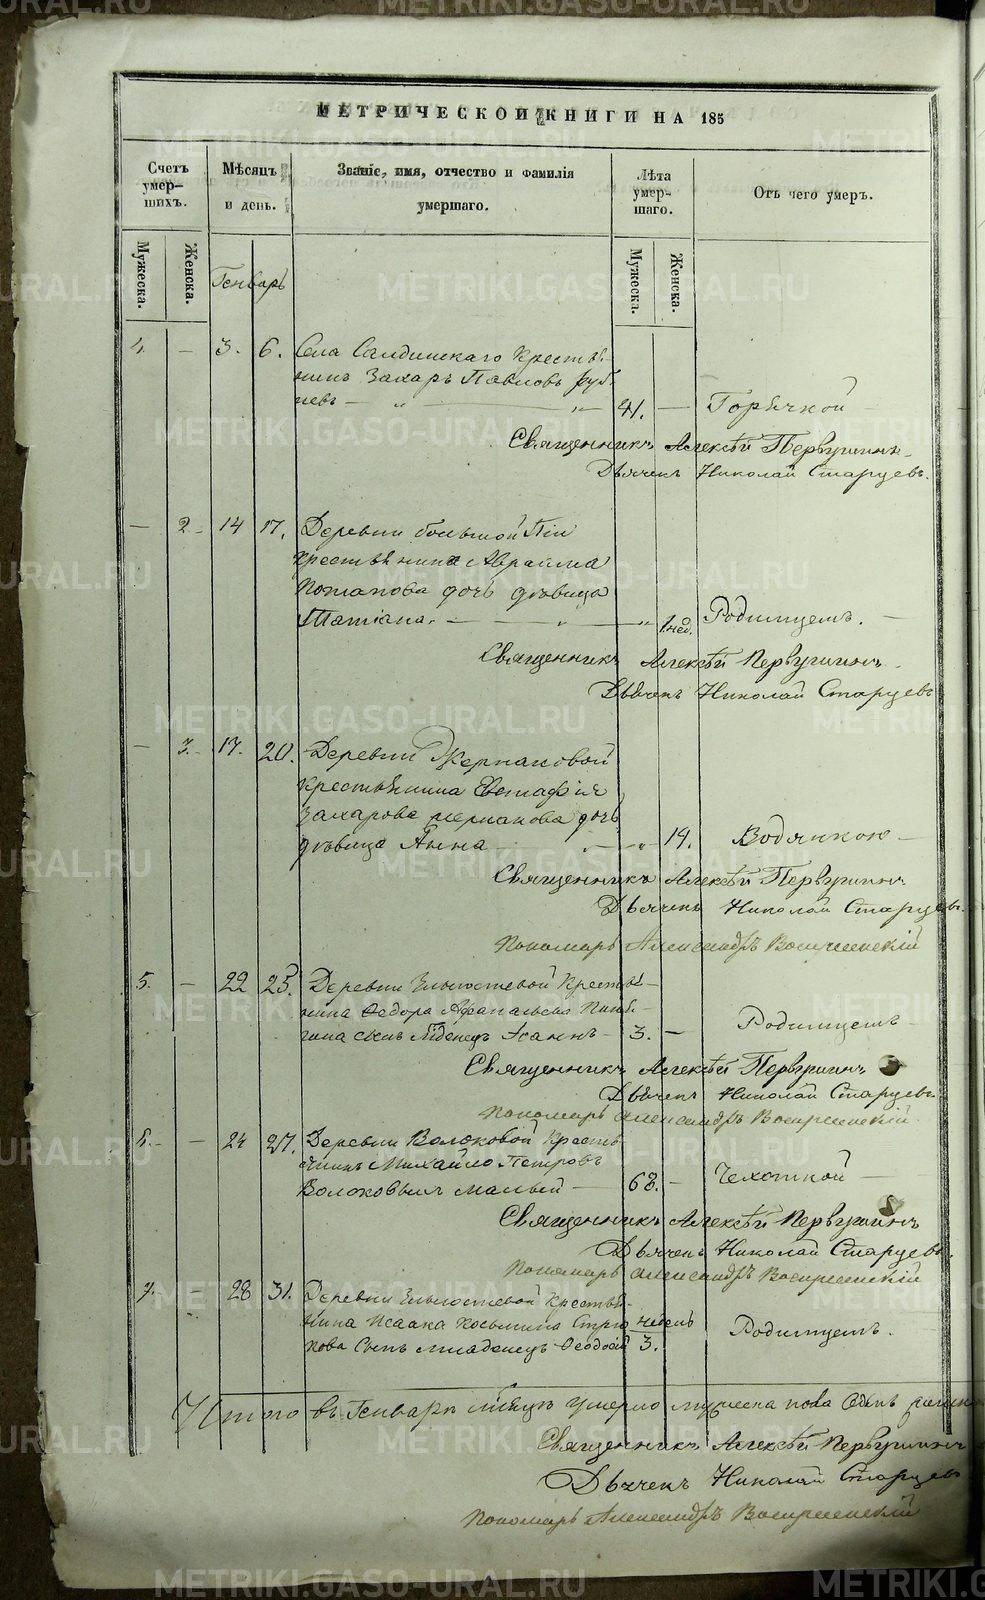 МЕТРИЧЕСКОЙ КНИГИ НА 185
Счетъ умер-шихъ.
Мѣсяцъ и день.
Званіе, имя, отчество и фамилія умершаго.
Лѣта умер-шаго.
Отъ чего умеръ.
Мужеска.
Женска.
Мужеска.
Женска.
Генварь
4. — 3. 6. Села Салдинскаго Крестья
нинъ Захаръ Павловъ
41. — Горячкой
Священникъ Алексѣй Первушинъ
Дьячекъ Николай Старцевъ.
— 2. 14 17. Деревни большой
крестьянина Авраама
Потапова дочь дѣвица
Татіана. 1 нед. Родимцемъ.
Священникъ Алексѣй Первушинъ.
Дьячекъ Николай Старцевъ
— 3. 17. 20. Деревни
крестьянина Евстафія
Захарова дочь
дѣвица Анна — 19. Водянкою
Священникъ Алексѣй Первушинъ
Дьячекъ Николай Старцевъ.
Пономарь Александръ Воскресенскій
5. — 22 25. Деревни Крестья
нина Ѳедора
сынъ Іоаннъ — 3. — Родимцемъ
Священникъ Алексѣй Первушинъ
Дьячекъ Николай Старцевъ.
Пономарь Александръ Воскресенскій.
6. — 24 27. Деревни Волоковой Кресть
янинъ Михайло Петровъ
Волоковыхъ малый — 68. — Чехоткой
Священникъ Алексѣй Первушинъ
Дьячекъ Николай Старцевъ.
Пономарь Александръ Воскресенскій
7. — 28 31. Деревни Крестья
нина Исаака Косьмина Стрю
кова Сынъ младенецъ Ѳеодосій
недель 3. Родимцемъ.
Итого въ Генварѣ мѣсяцѣ умерло мужеска пола
Священникъ Алексѣй Первушинъ
Дьячекъ Николай Старцевъ.
Пономарь Александръ Воскресенскій
METRIKI.GASO-URAL.RU